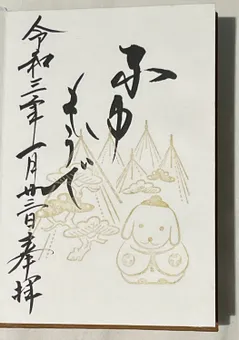 ふゆ
もうで
令和三年一月廿三日奉拝